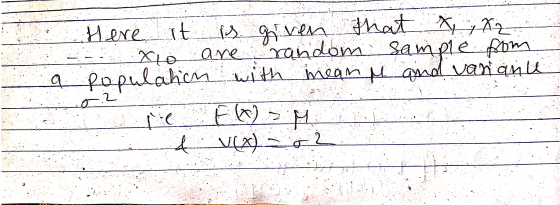 Here it is given that x1, x2
---- x10 are random sample from
a population with mean μ and variance
σ2
i.e E(x) = μ
& V(x) = σ2